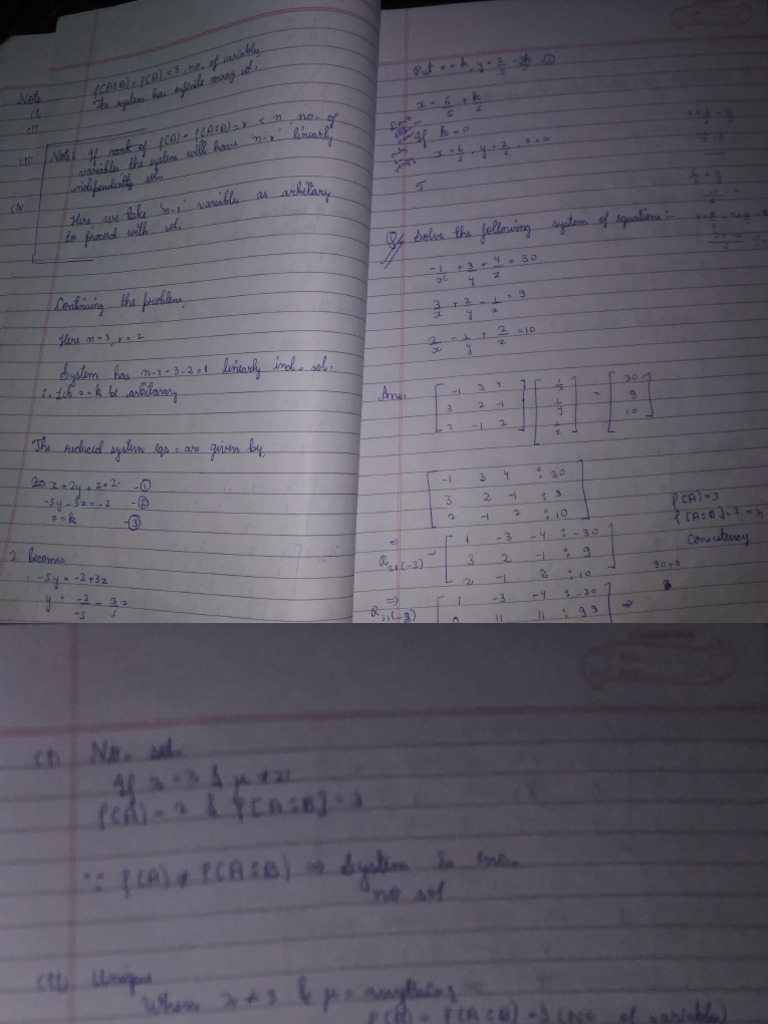 ρ(A:B) = ρ(A) = 3, no. of variable
The system has infinite many sol.
Note
(I)
(II)
(III)
Note: If rank of ρ(A) = ρ(A:B) = r < n, no. of
variable the system will have 'n-r' linearly
independently sol.
(IV
Here we take 'n-r' variable as arbitary
to proceed with sol.
Continuing the problem,
Here n=3, r=2
System has n-r=3-2=1 linearly ind. sol.
∴ Let z=k be arbitarary
The reduced system eqs. are given by,
x+2y+z=2 -①
-5y-3z=-2 -②
z=k -③
2 becomes
-5y = -2+3z
y = -2/-5 - 3z/5
Put z=k, y = 2/5 - 3k/5 ①
x = 6/5 + k/5
If k=0
x = 6/5, y = 2/5, z=0
Q Solve the following system of equations:-
-1/x + 3/y + 4/z = 30
3/x + 2/y - 1/z = 9
2/x - 1/y + 2/z = 10
Ans.
[-1 3 4] [1/x] = [30]
[3 2 -1] [1/y] [9]
[2 -1 2] [1/z] [10]
[-1 3 4 : 30]
[3 2 -1 : 9]
[2 -1 2 : 10]
ρ(A)=3
ρ[A:B]=3
Consistency
⇒
[1 -3 -4 : -30]
R₂₁(-3) [3 2 -1 : 9]
[2 -1 2 : 10]
⇒
[1 -3 -4 : -30] ⇒
11 11 : 99
(I) No. sol.
If λ=3 & μ≠21
ρ(A)=2 & ρ[A:B]=3
∵ ρ(A) ≠ ρ(A:B) ⇒ System is inc.
no sol
(II) Unique
When λ≠3 & μ = anything
ρ(A) = ρ(A:B) = 3 (No. of variable)